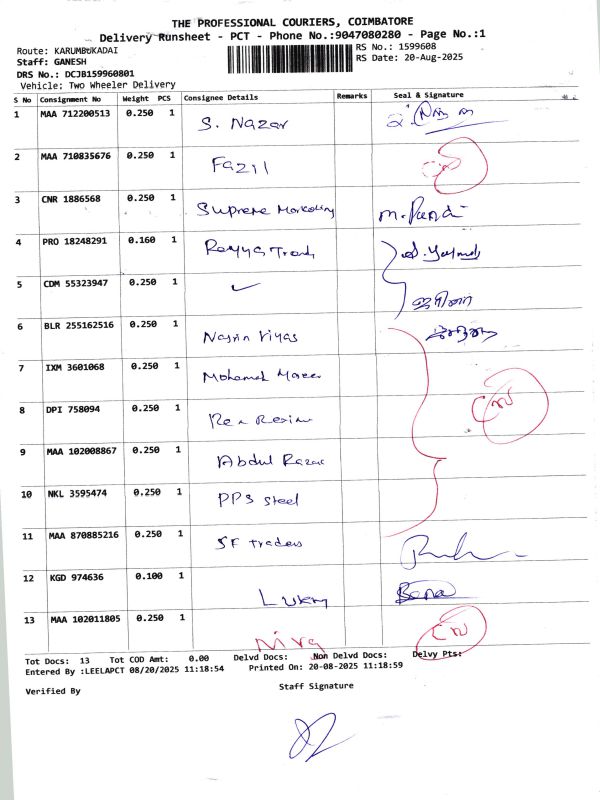 THE PROFESSIONAL COURIERS, COIMBATORE
Delivery Runsheet - PCT - Phone No.:9047080280 - Page No.:1
Route: KARUMBUKADAI
RS No.: 1599608
Staff: GANESH
RS Date: 20-Aug-2025
DRS No.: DCJB159960801
Vehicle: Two Wheeler Delivery
S No Consignment No Weight PCS Consignee Details Remarks Seal & Signature
1 MAA 712200513 0.250 1 S. Nazar
2 MAA 710835676 0.250 1 Fazil
3 CNR 1886568 0.250 1 Supreme Marketing
4 PRO 18248291 0.160 1
5 CDM 55323947 0.250 1 ✓
6 BLR 255162516 0.250 1 Viyas
7 IXM 3601068 0.250 1 Mohamed
8 DPI 758094 0.250 1
9 MAA 102008867 0.250 1 Abdul Razac
10 NKL 3595474 0.250 1 PPS Steel
11 MAA 870885216 0.250 1 SF Traders
12 KGD 974636 0.100 1
13 MAA 102011805 0.250 1
Tot Docs: 13 Tot COD Amt: 0.00 Delvd Docs: Non Delvd Docs: Delvy Pts:
Entered By :LEELAPCT 08/20/2025 11:18:54 Printed On: 20-08-2025 11:18:59
Verified By
Staff Signature